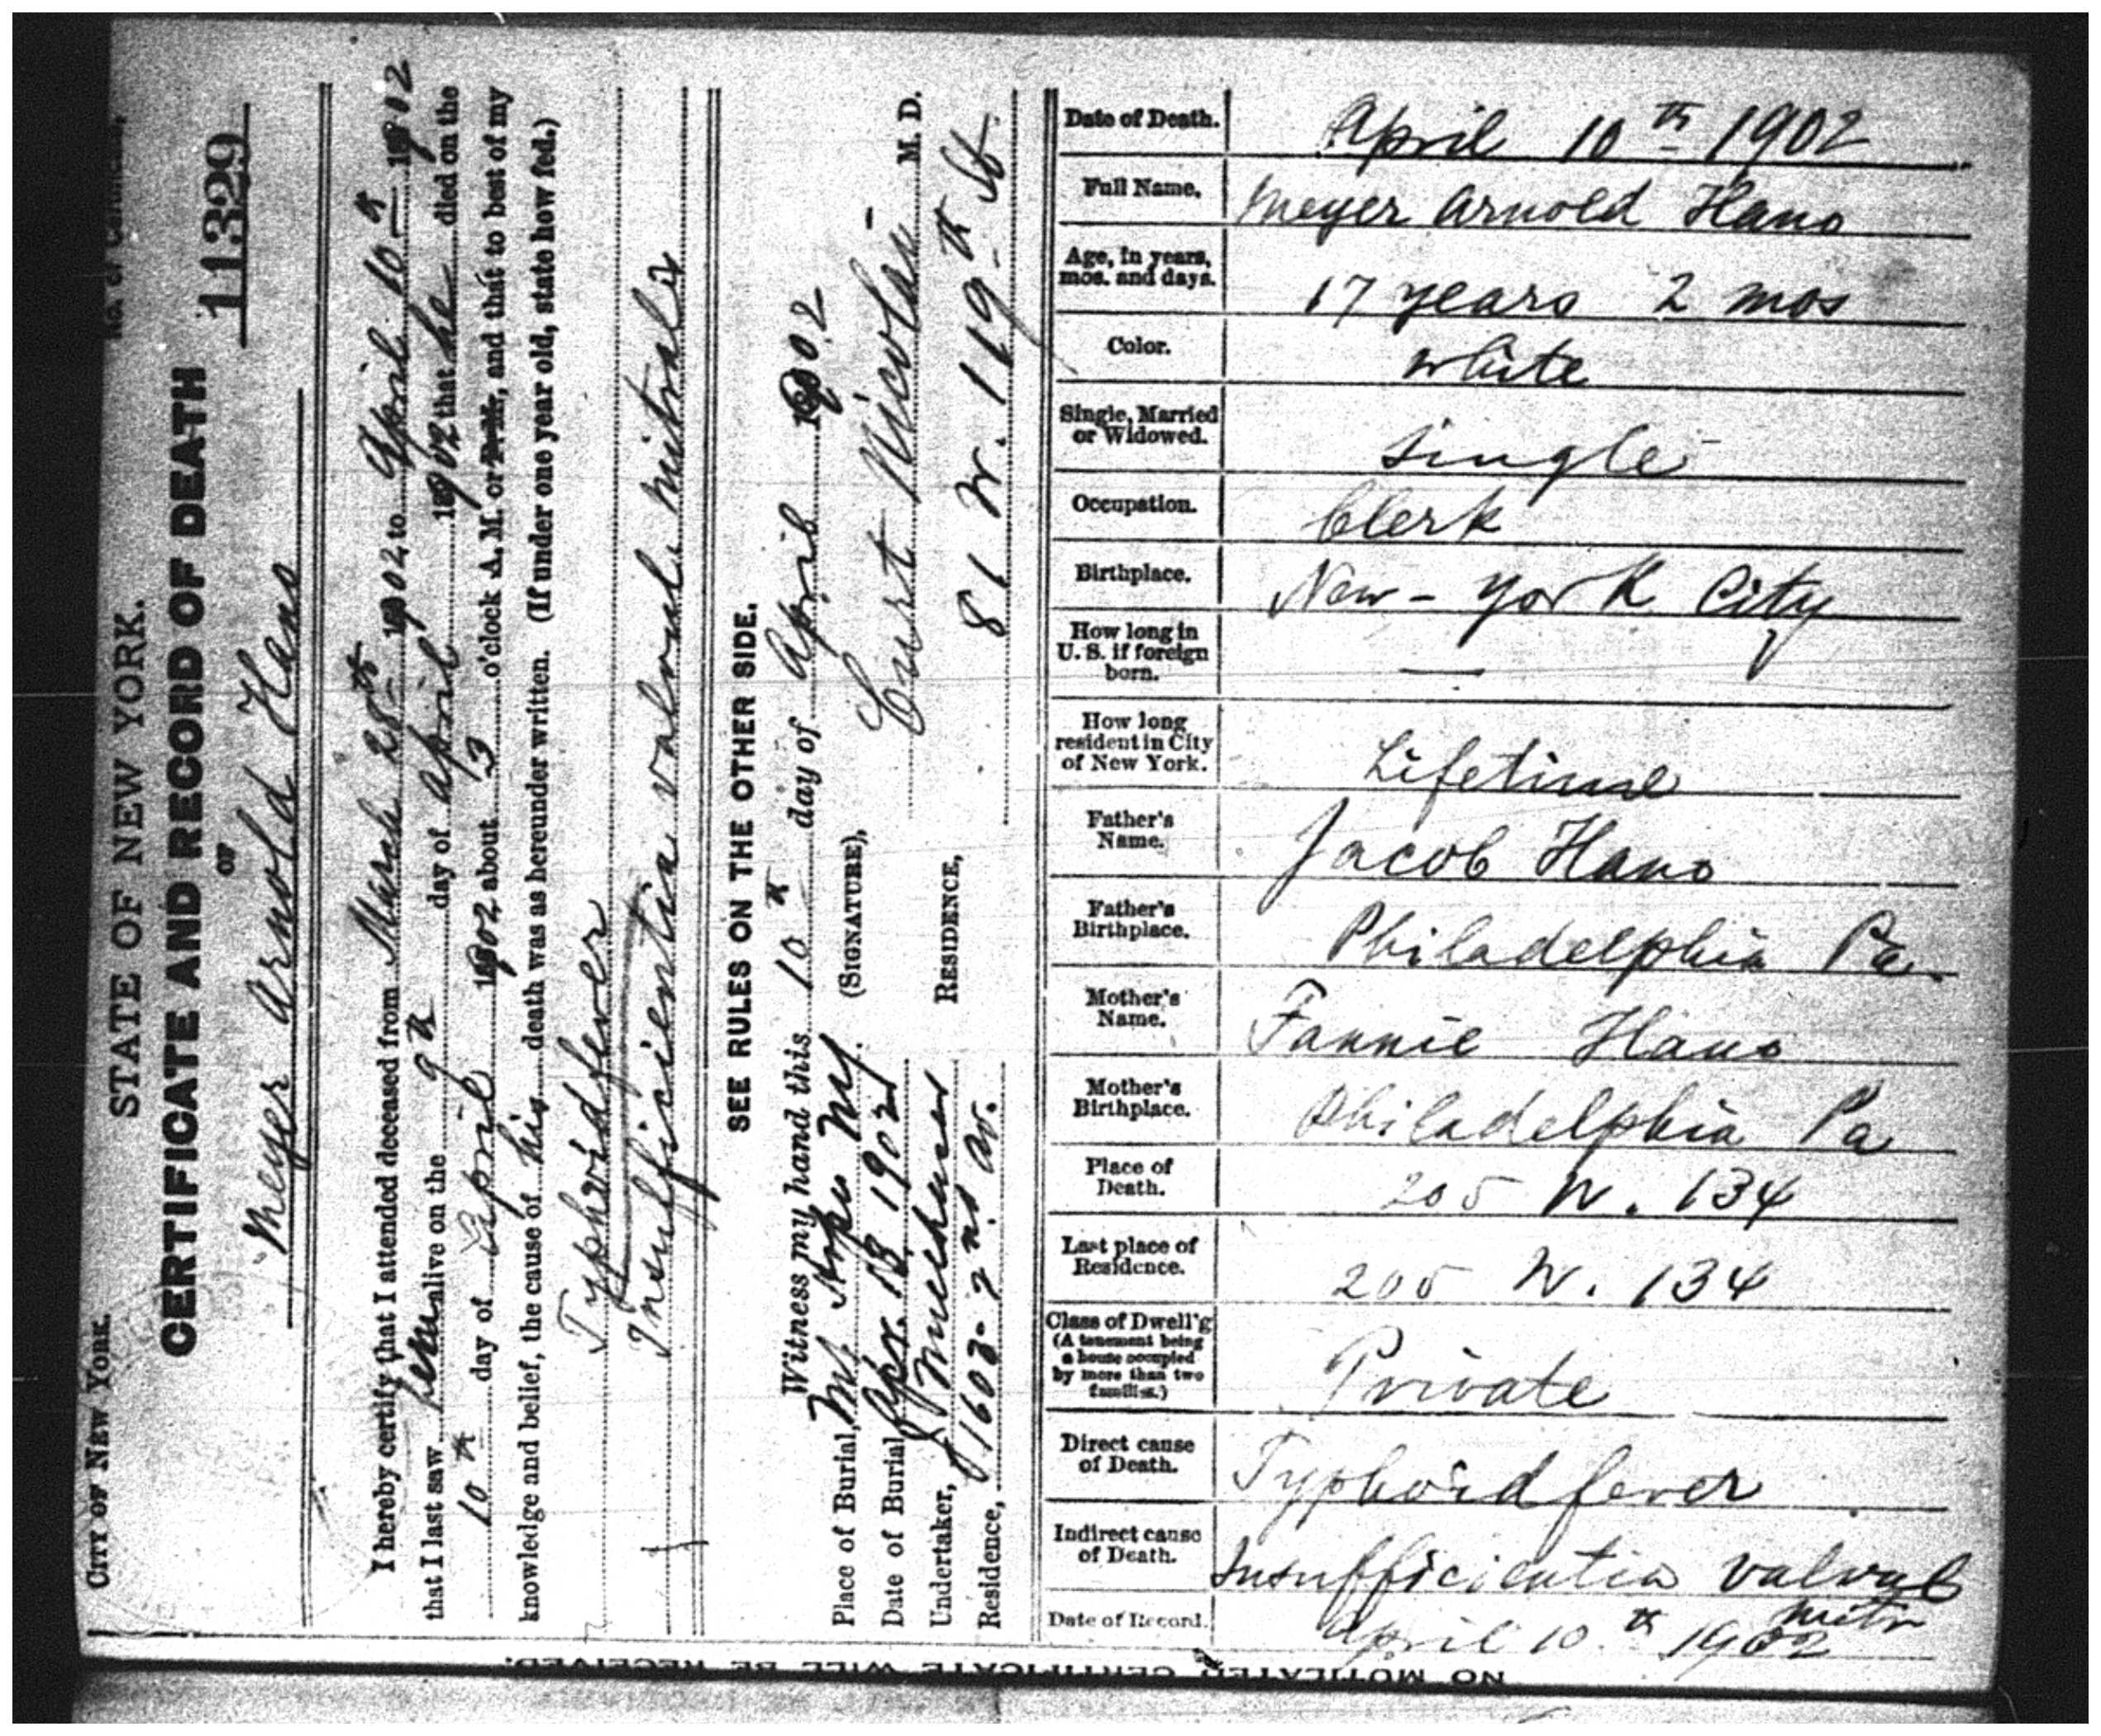 CITY OF NEW YORK.
STATE OF NEW YORK.
CERTIFICATE AND RECORD OF DEATH
OF
11329
Meyer Arnold Hano
I hereby certify that I attended deceased from March 28th 1902 to April 10th 1902
that I last saw him alive on the 9th day of April 1902 that he died on the
10th day of April 1902 about 3 o'clock A. M. or P. M., and that to best of my
knowledge and belief, the cause of his death was as hereunder written. (If under one year old, state how fed.)
Typhoid fever
Insufficientia valvul. mitralis
SEE RULES ON THE OTHER SIDE.
Witness my hand this 10th day of April 1902
Place of Burial, Mt
(SIGNATURE), Curt Nicolai M. D.
Date of Burial, Apr. 13 1902
Undertaker,
RESIDENCE, 81 W. 119th St.
Residence, 1603-2nd Av.
Date of Death. April 10th 1902
Full Name. Meyer Arnold Hano
Age, in years, mos. and days. 17 years 2 mos
Color. White
Single, Married or Widowed. Single
Occupation. Clerk
Birthplace. New-York City
How long in U. S. if foreign born. —
How long resident in City of New York. Lifetime
Father's Name. Jacob Hano
Father's Birthplace. Philadelphia Pa.
Mother's Name. Fannie Hano
Mother's Birthplace. Philadelphia Pa
Place of Death. 205 W. 134
Last place of Residence. 205 W. 134
Class of Dwell'g (A tenement being a house occupied by more than two families.) Private
Direct cause of Death. Typhoid fever
Indirect cause of Death. Insufficientia valvul
mitr
Date of Record. April 10th 1902
NO MUTILATED CERTIFICATE WILL BE RECEIVED.